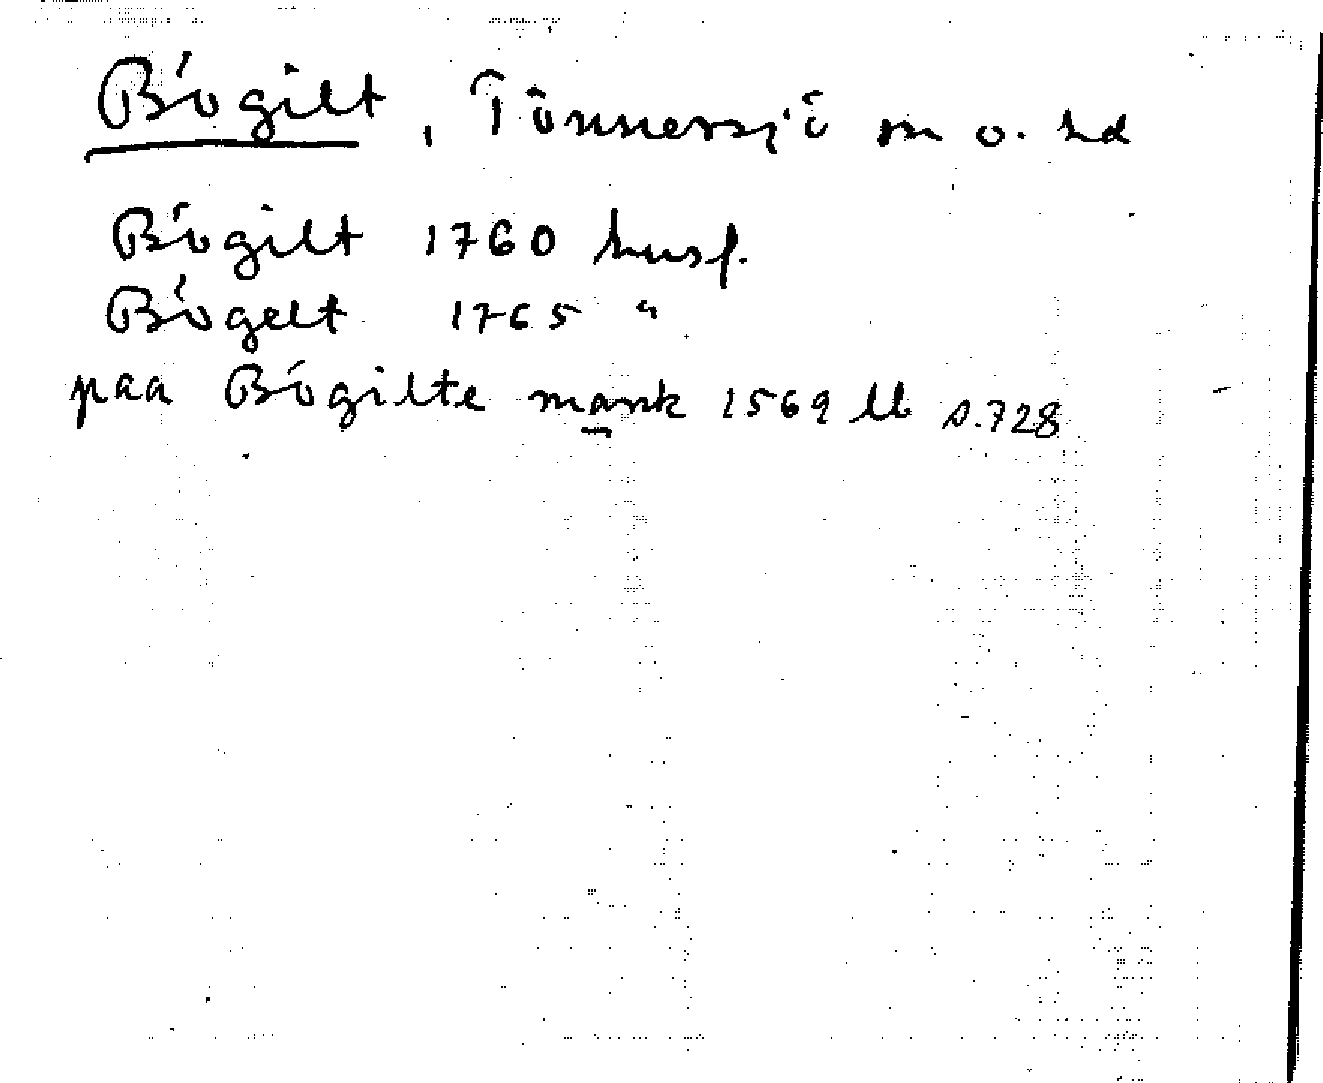 Bögilt, Tönnersjö sn o. hd
Bögilt 1760 husf.
Bögelt 1765 "
paa Bögilte mark 1569 lb s.728